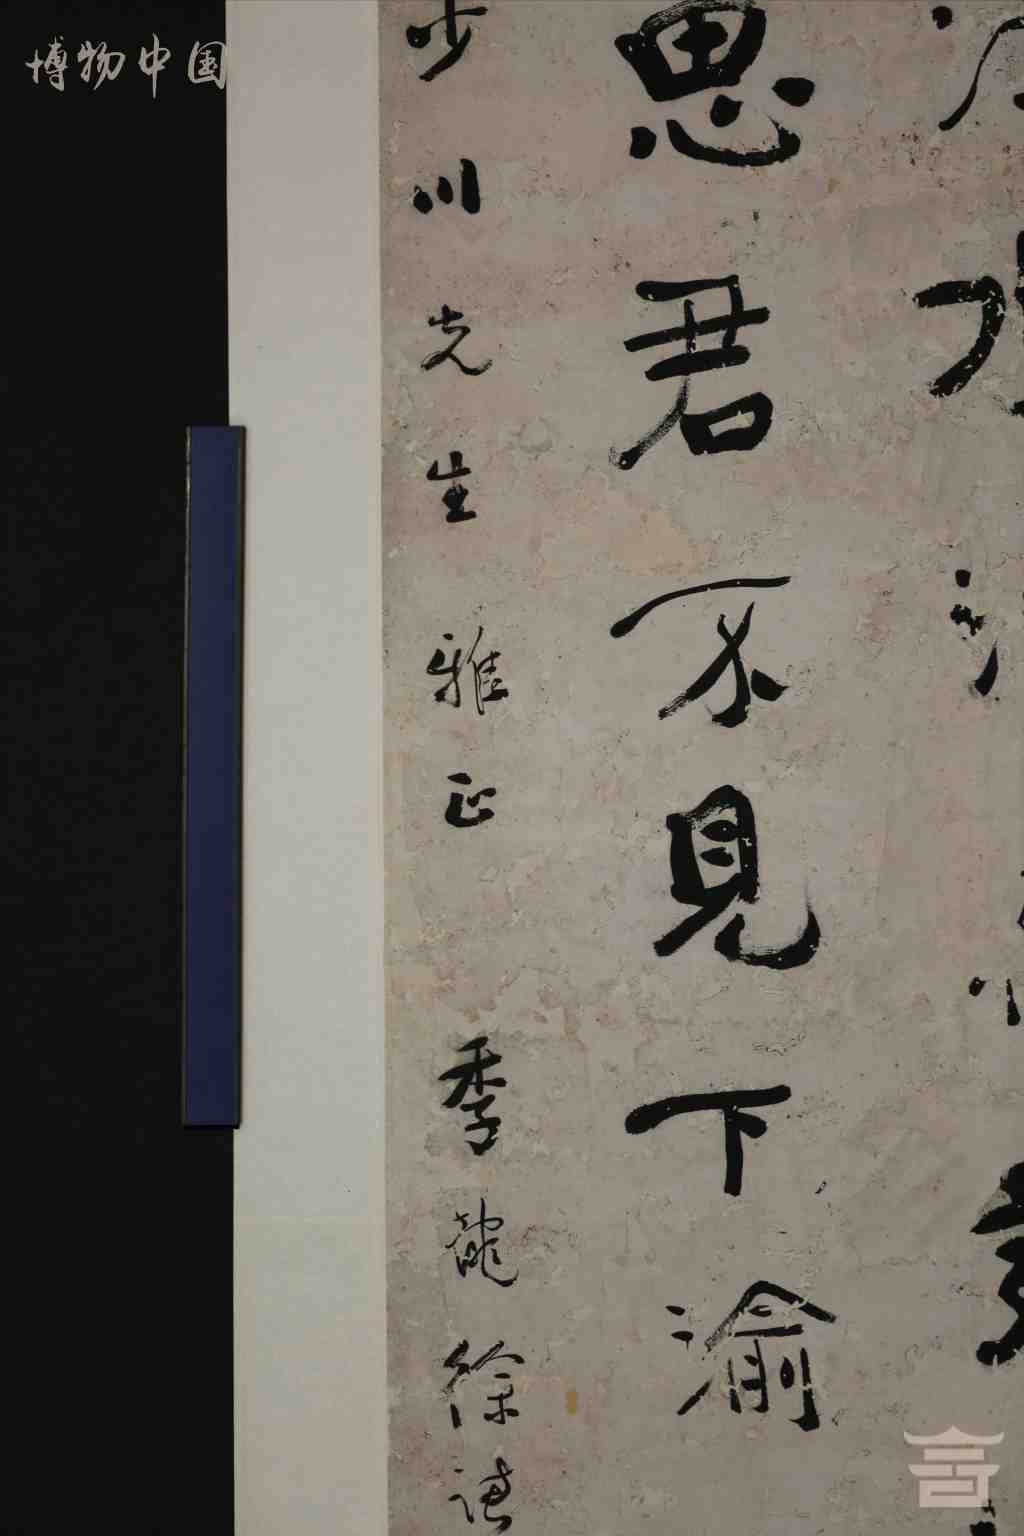 博物中国
思君不見下渝
少川先生雅正 季龍徐謙